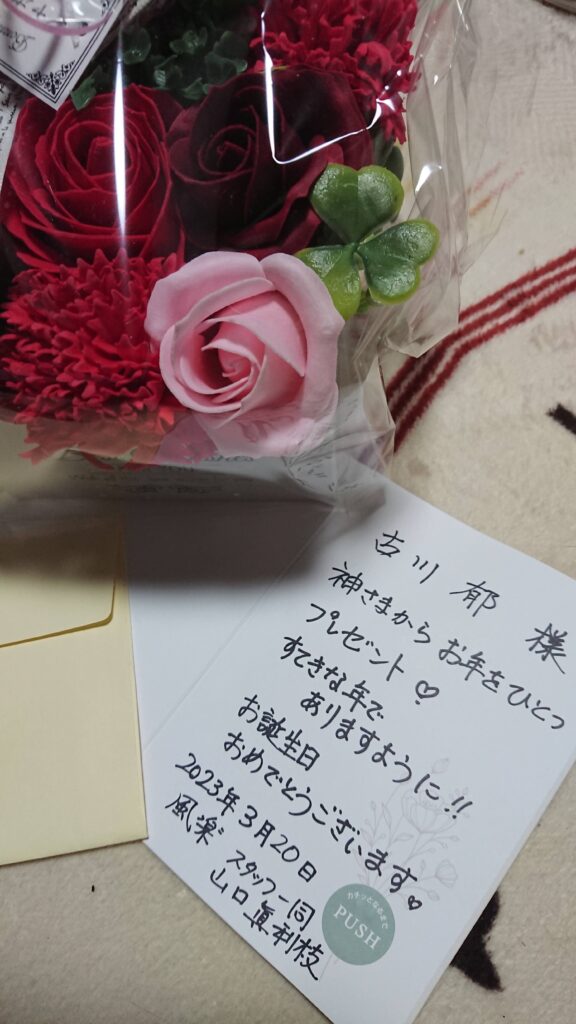 古川 郁 様
神さまから お年をひとつ
プレゼント♡
すてきな年で
ありますように!!
お誕生日
おめでとうございます♡
2023年3月20日
風楽
スタッフ一同
山口眞利枝
カチッとなるまで
PUSH